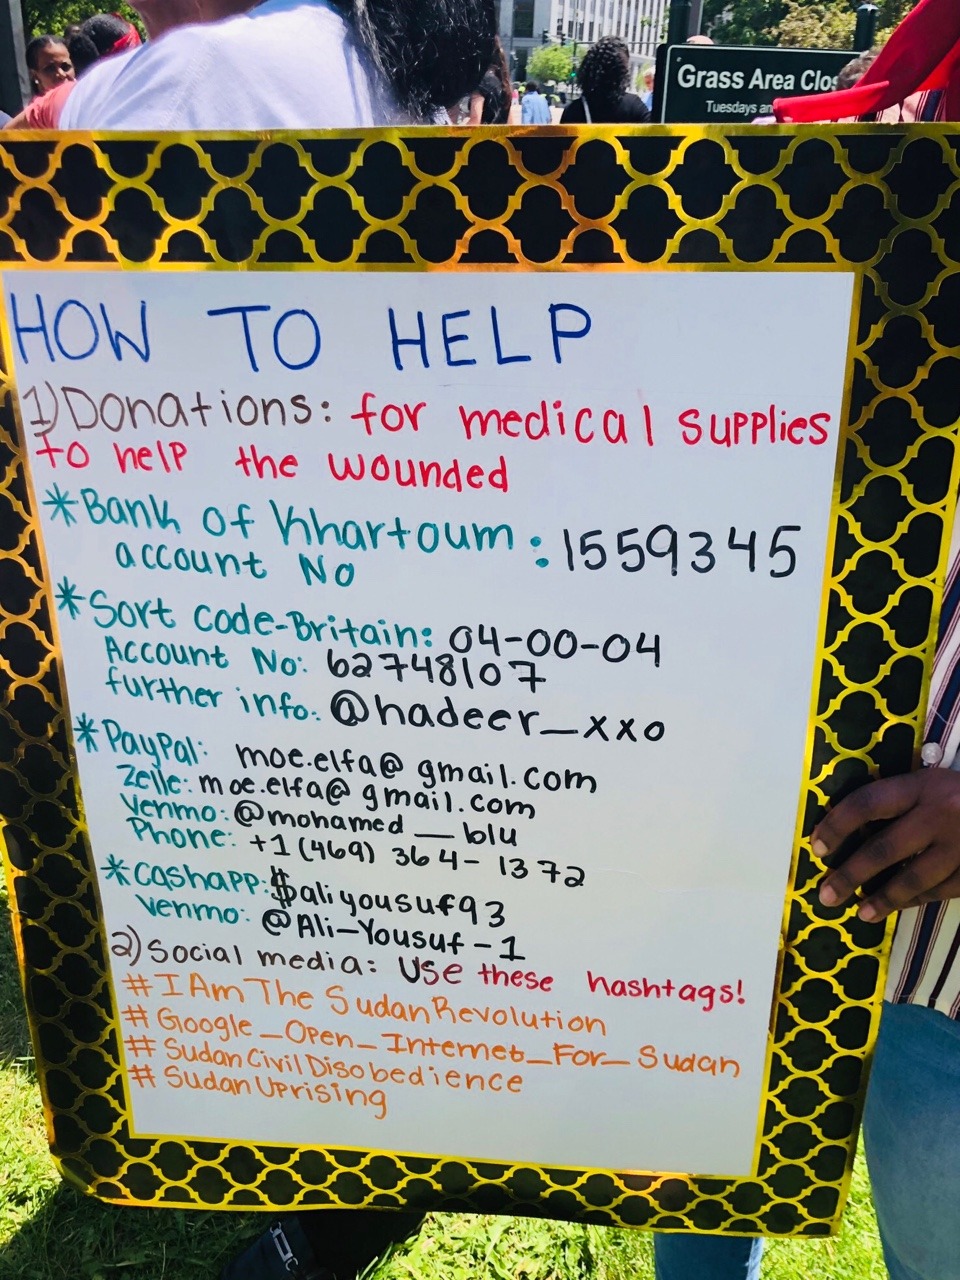 Grass Area Clos
Tuesdays an
HOW TO HELP
1) Donations: for medical supplies
to help the wounded
*Bank of Khartoum : 1559345
account No
*Sort code-Britain: 04-00-04
Account No: 62748107
further info: @hadeer_xxo
*PayPal: moe.elfa@gmail.com
Zelle: moe.elfa@gmail.com
Venmo: @mohamed__blu
Phone: +1 (469) 364-1372
*cashapp: $aliyousuf93
Venmo: @Ali-Yousuf-1
2) Social media: Use these hashtags!
#IAmTheSudanRevolution
#Google_Open_Internet_For_Sudan
#SudanCivilDisobedience
#SudanUprising